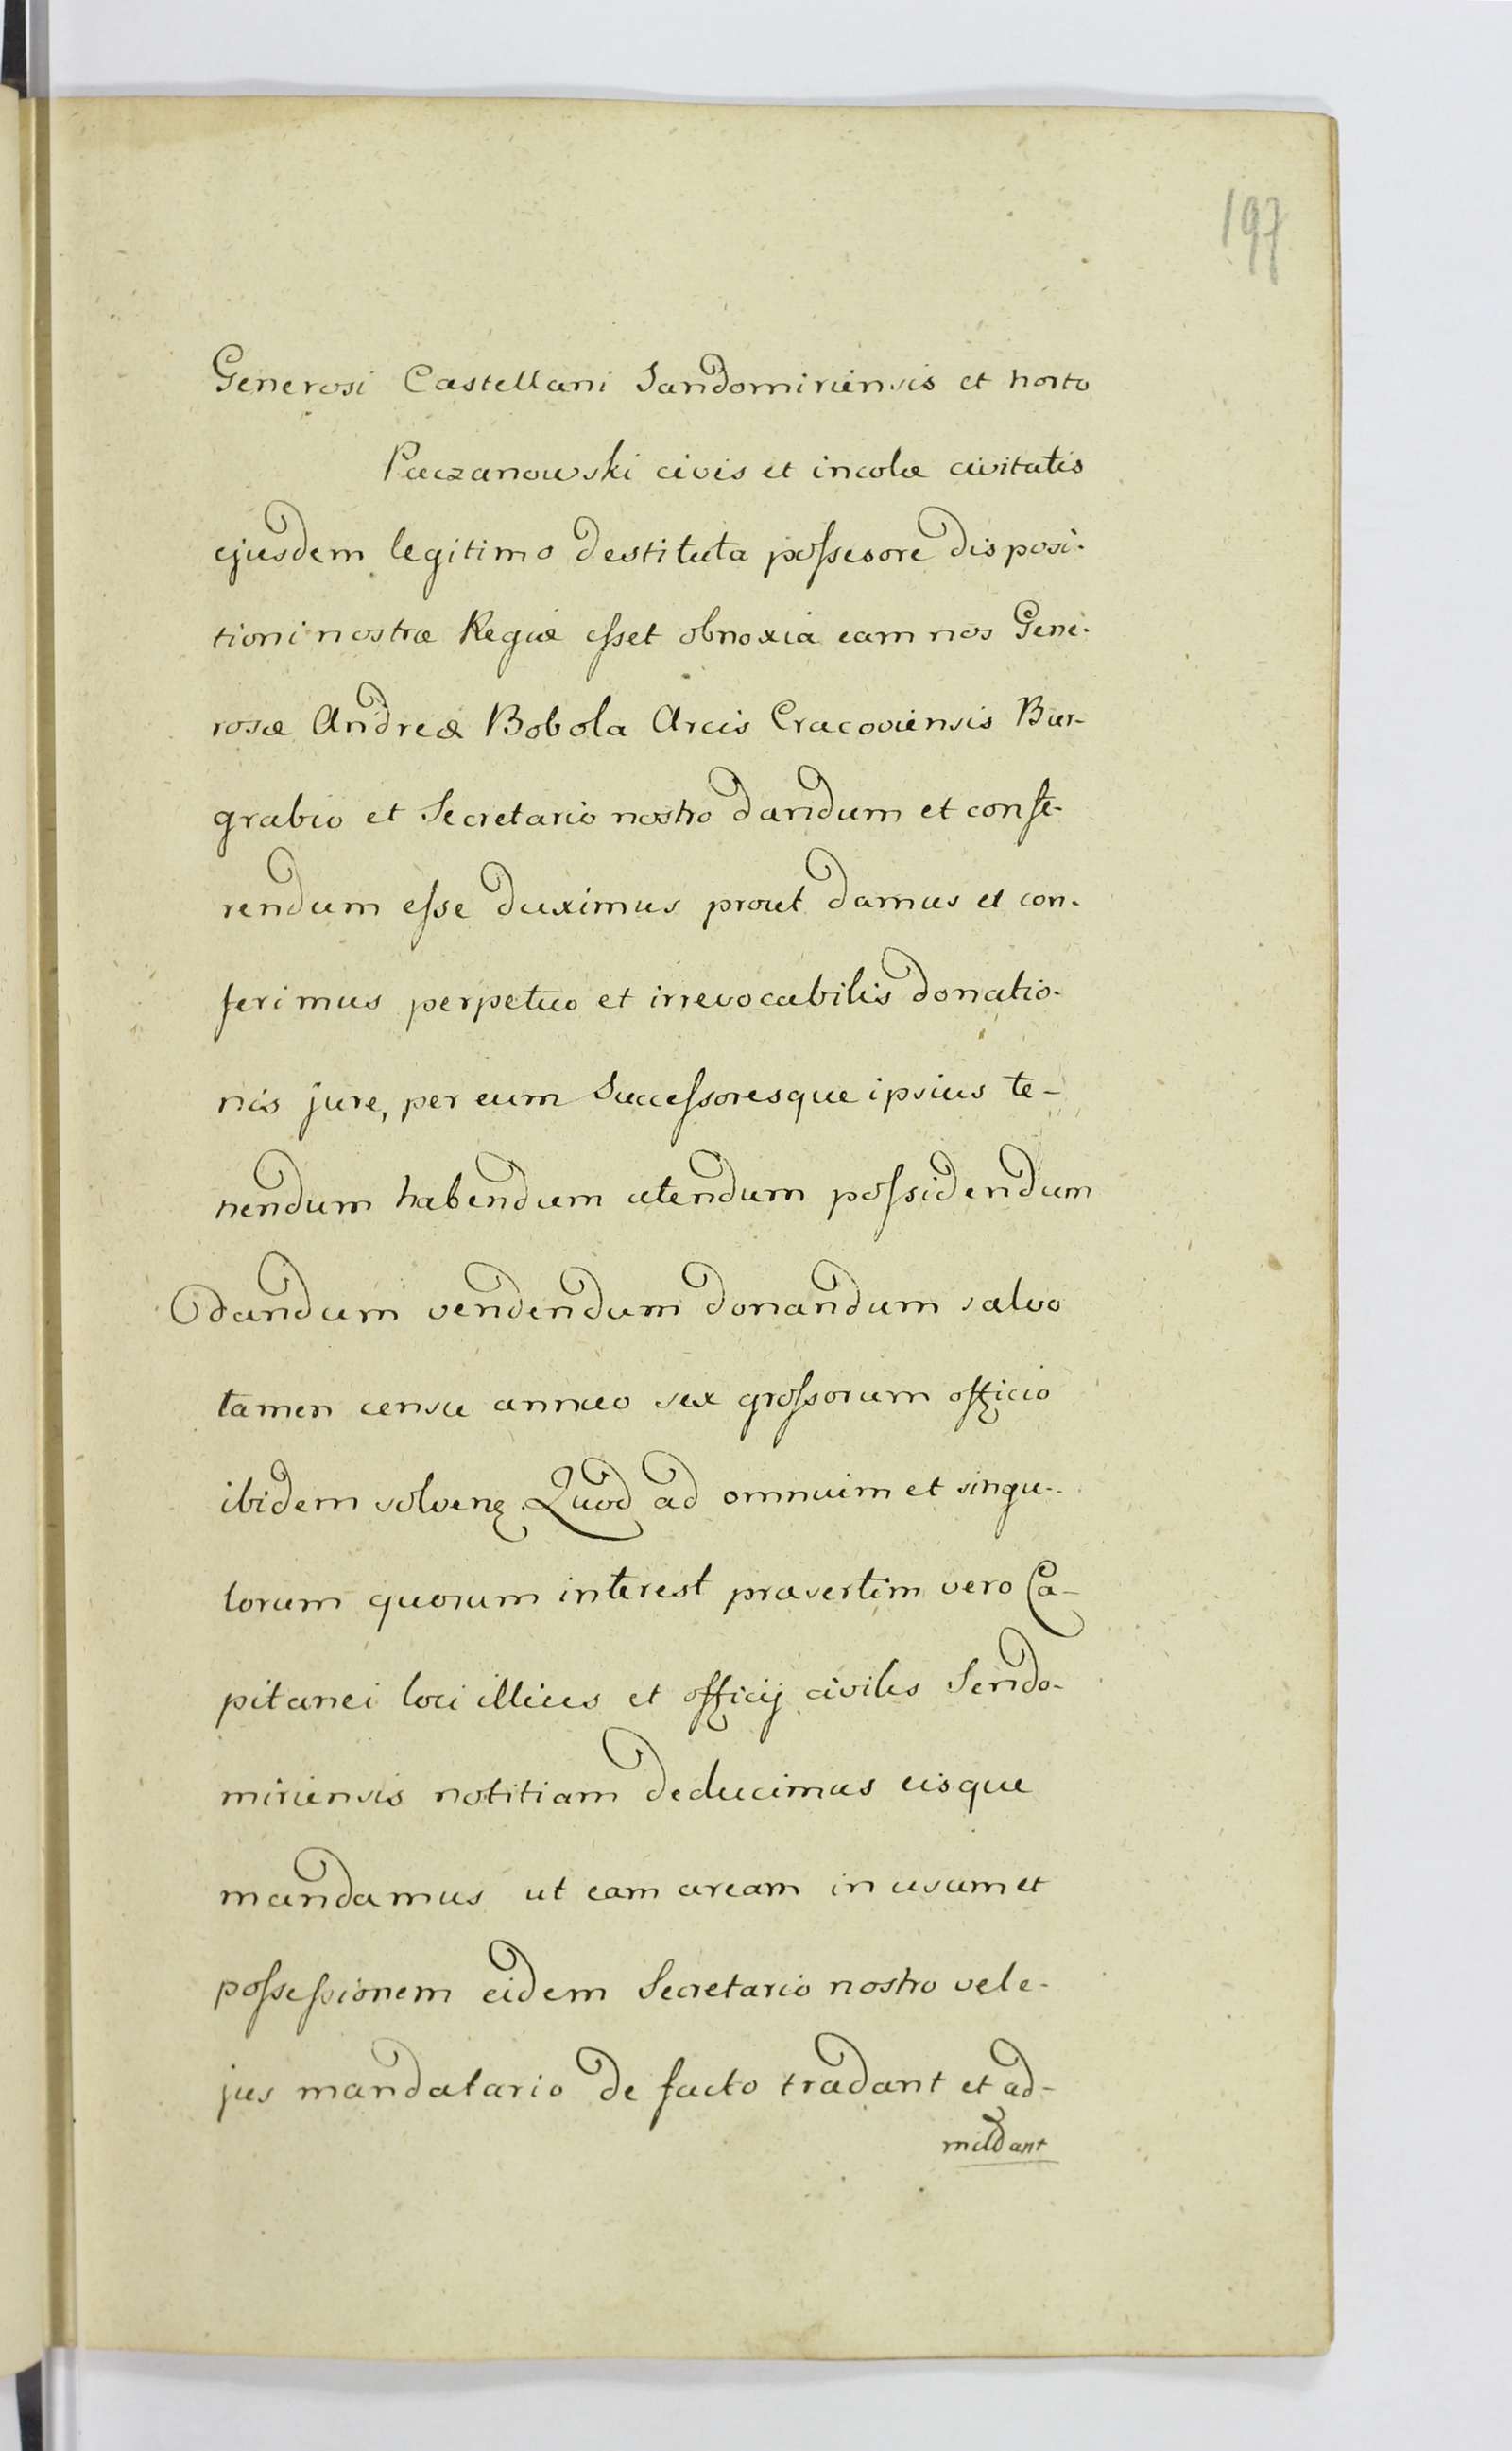 197
Generosi Castellani Sandomiriensis et horto
Paczanowski civis et incolæ civitatis
ejusdem legitimo destituta possesore disposi-
tioni nostræ Regiæ esset obnoxia eam nos Gene-
rosæ Andreæ Bobola Arcis Cracoviensis Bur-
grabio et Secretario nostro dandum et confe-
rendum esse duximus prout damus et con-
ferimus perpetuo et irrevocabilis donatio-
nis jure, per eum Successoresque ipsius te-
nendum habendum utendum possidendum
dandum vendendum donandum salvo
tamen censu annuo sex grossorum officio
ibidem solveng. Quod ad omnium et singu-
lorum quorum interest præsertim vero Ca-
pitanei loci illius et officij civilis Sendo-
miriensis notitiam deducimus eisque
mandamus ut eam aream in usum et
possessionem eidem Secretario nostro vel e-
jus mandatario de facto tradant et ad-
mittant